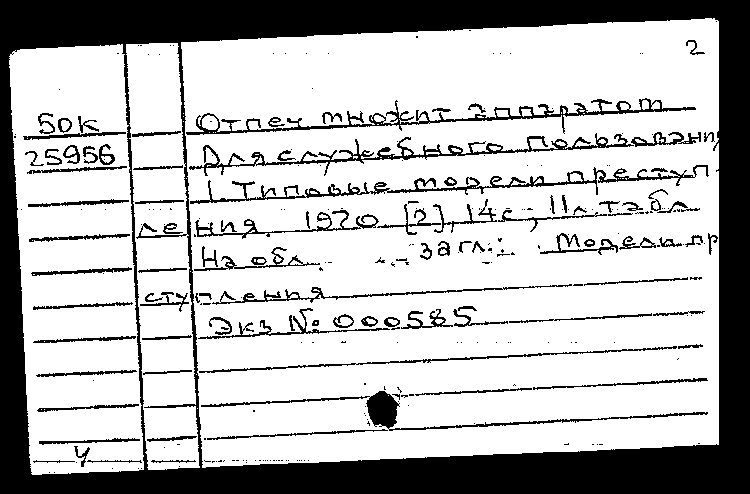 2
50к Отпеч множит аппаратом
25956 Для служебного пользовани
1. Типовые модели преступ-
ления. 1970 [2], 14с, 11л. табл
На обл. загл.: Модели пр
ступления
Экз № 000585
Ч